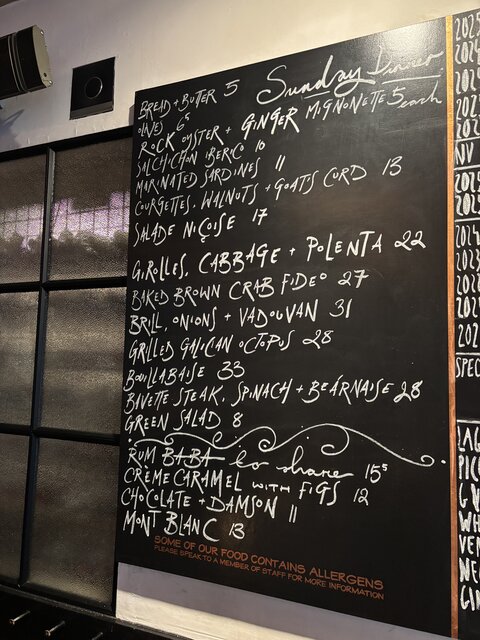 Sunday Dinner
BREAD + BUTTER 5
OLIVES 6⁵
ROCK OYSTER + GINGER MIGNONETTE 5 each
SALCHICHON IBERICO 10
MARINATED SARDINES 11
COURGETTES, WALNUTS + GOATS CURD 13
SALADE NIÇOISE 17
GIROLLES, CABBAGE + POLENTA 22
BAKED BROWN CRAB FIDEO 27
BRILL, ONIONS + VADOUVAN 31
GRILLED GALICIAN OCTOPUS 28
BOUILLABAISE 33
BAVETTE STEAK, SPINACH + BEARNAISE 28
GREEN SALAD 8
RUM BABA to share 15⁵
CRÈME CARAMEL WITH FIGS 12
CHOCOLATE + DAMSON 11
MONT BLANC 13
SOME OF OUR FOOD CONTAINS ALLERGENS
PLEASE SPEAK TO A MEMBER OF STAFF FOR MORE INFORMATION
NV
SPEC